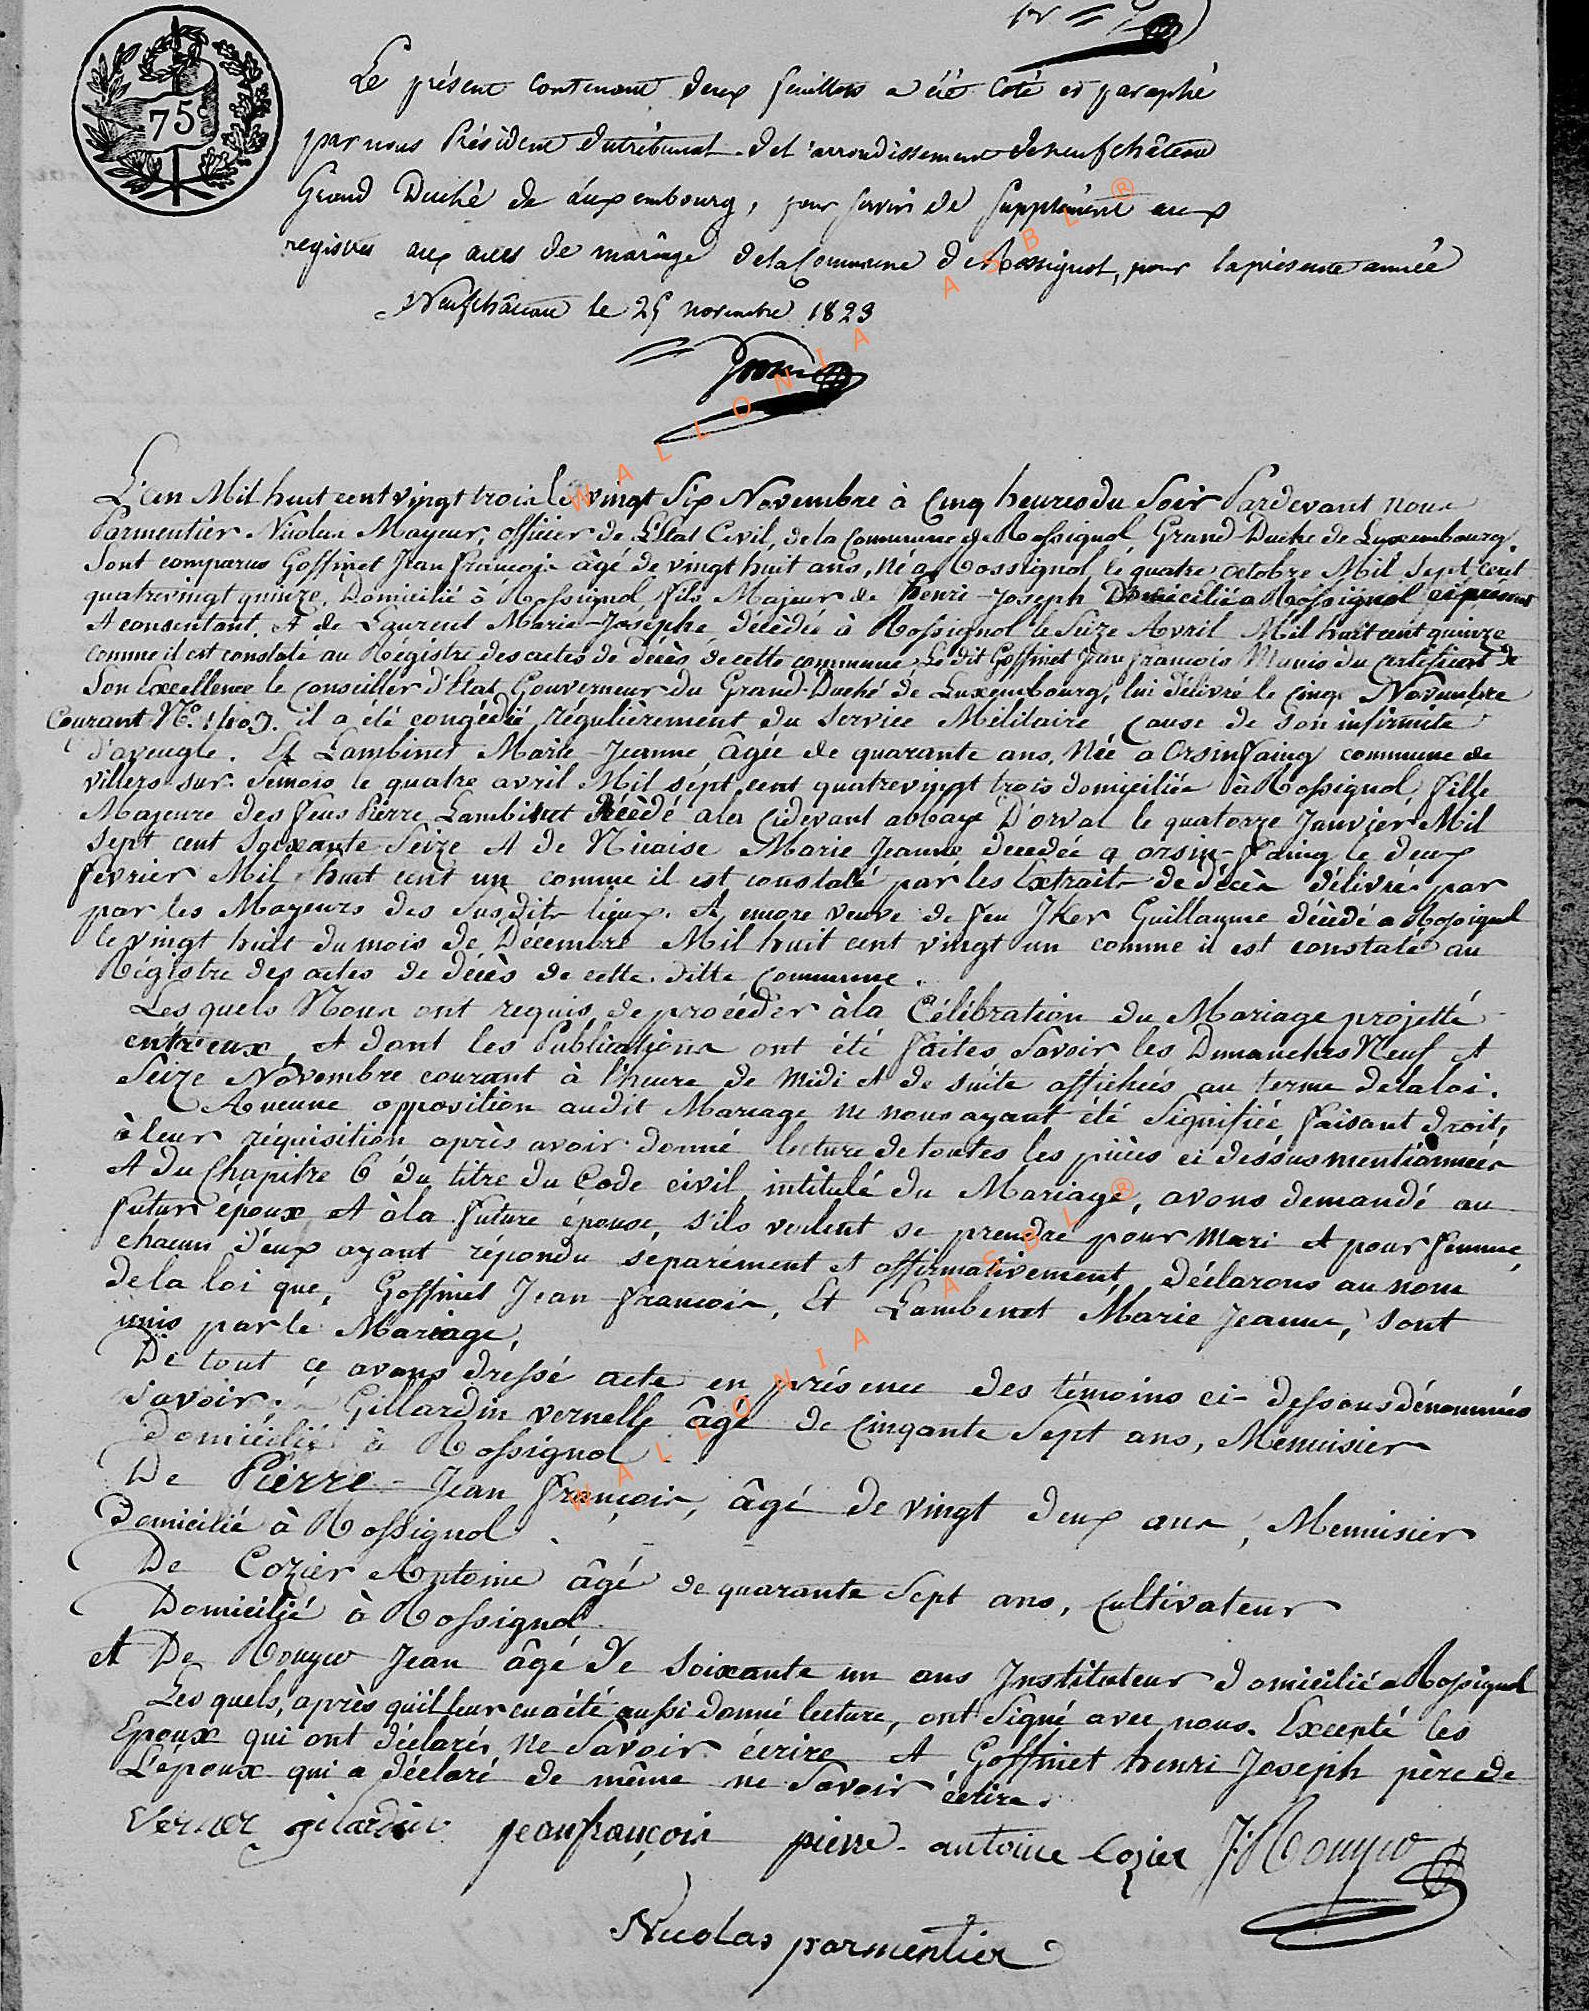 75
Le présent contenant deux feuillets a été coté et paraphé
par nous Président du tribunal de l'arrondissement de neufchâteau
Grand Duché de Luxembourg, pour servir de Supplément aux
registres aux actes de mariage de la Commune de Rossignol, pour la présente année
Neufchâteau le 25 novembre 1823
L'an Mil huit cent vingt trois le vingt Six Novembre à Cinq heures du Soir Pardevant nous
Parmentier Nicolas Mayeur, officier de L'Etat Civil, de la Commune de Rossignol Grand-Duché de Luxembourg.
Sont comparus Goffinet Jean françois âgé de vingt huit ans, Né à Rossignol le quatre octobre Mil Sept Cent
quatrevingt quinze, Domicilié à Rossignol fils Majeur de henri-Joseph Domicilié a Rossignol ci présent
Et consentant, Et de Laurent Marie-Josephe décédée à Rossignol le Seize Avril Mil huit cent quinze
comme il est constaté au Régistre des actes de Décès de cette commune Le dit Goffinet Jean francois Munis du Certificat de
Son Excellence le Conseiller d'Etat Gouverneur du Grand-Duché de Luxembourg, lui délivré le Cinq Novembre
Courant No. il a été congédié régulièrement du Service Militaire cause de son infirmité
d'aveugle. Et Lambinet Marie-Jeanne, âgée de quarante ans, Née a Orsinfaing commune de
villers-sur-Semois le quatre avril Mil Sept cent quatrevingt trois domiciliée à Rossignol, fille
Majeure des feus Pierre Lambinet Décèdé a la Cidevant abbaye D'orval le quatorze Janvier Mil
Sept cent Soixante Seize Et de Nicaise Marie Jeanne décédée a orsin-faing le deux
fevrier Mil huit cent un comme il est constaté par les Extraits de décès délivrés par
par les Mayeurs des Susdits lieux. Et encore veuve de feu Guillaume décédé a Rossignol
le vingt huit du mois de Décembre Mil huit cent vingt un comme il est constaté au
Régistre des actes de décès de cette ditte Commune.
Les quels Nous ont requis de procéder à la Célébration du Mariage projetté
entr'eux, et dont les Publications ont été faites Savoir les Dimanches Neuf et
Seize Novembre courant à l'heure de Midi et de suite affichées au terme de la loi.
Aucune opposition audit Mariage ne nous ayant été Signifiée faisant droit,
à leur réquisition après avoir donné lecture de toutes les pièces ci dessus mentionnées
Et du Chapitre 6 du titre du Code civil intitulé du Mariage, avons demandé au
futur époux et à la future épouse, s'ils veulent se prendre pour Mari et pour femme,
chacun d'eux ayant répondu séparément et affirmativement, Déclarons au nom
de la loi que, Goffinet Jean francois, Et Lambinet Marie Jeanne, sont
unis par le Mariage,
De tout ce avons dressé acte en présence des témoins ci-dessous dénommés
Savoir: Gillardin vernelle âgé de Cinqante Sept ans, Menuisier
Domicilié à Rossignol
De Pierre-Jean françois, âgé de vingt deux ans, Menuisier
Domicilié à Rossignol.
De Cozier Antoine âgé de quarante Sept ans, Cultivateur
Domicilié à Rossignol.
et De Rouyw Jean âgé de Soixante un ans Instituteur domicilié a Rossignol
Les quels, après qu'il leur en a été aussi donné lecture, ont Signé avec nous. Excepté les
Epoux qui ont déclarés ne Savoir écrire et Goffinet henri Joseph père de
L'époux qui a déclaré de même ne Savoir écrire.
verner gilardin jean françois pierre antoine Cozier J: Rouyw
Nicolas parmentier
WALLONIA ASBL ®
WALLONIA ASBL ®